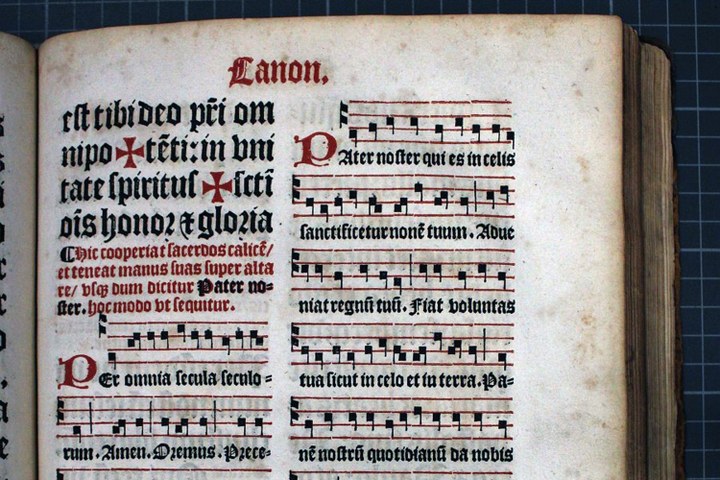 Canon.
est tibi deo pr̄i om
nipo✠tēti: in vni
tate spiritus ✠ sctī
oīs honor ⁊ gloria
Hic cooperiat sacerdos calicē/
et teneat manus suas super alta
re/ vsqꝫ dum dicitur Pater no-
ster. hoc modo vt sequitur.
PEr omnia secula seculo-
rum. Amen. Oremus. Prece-
PAter noster qui es in celis
sanctificetur nomē tuum. Adue
niat regnū tuū. Fiat voluntas
tua sicut in celo et in terra. Pa-
nē nostrū quotidianū da nobis